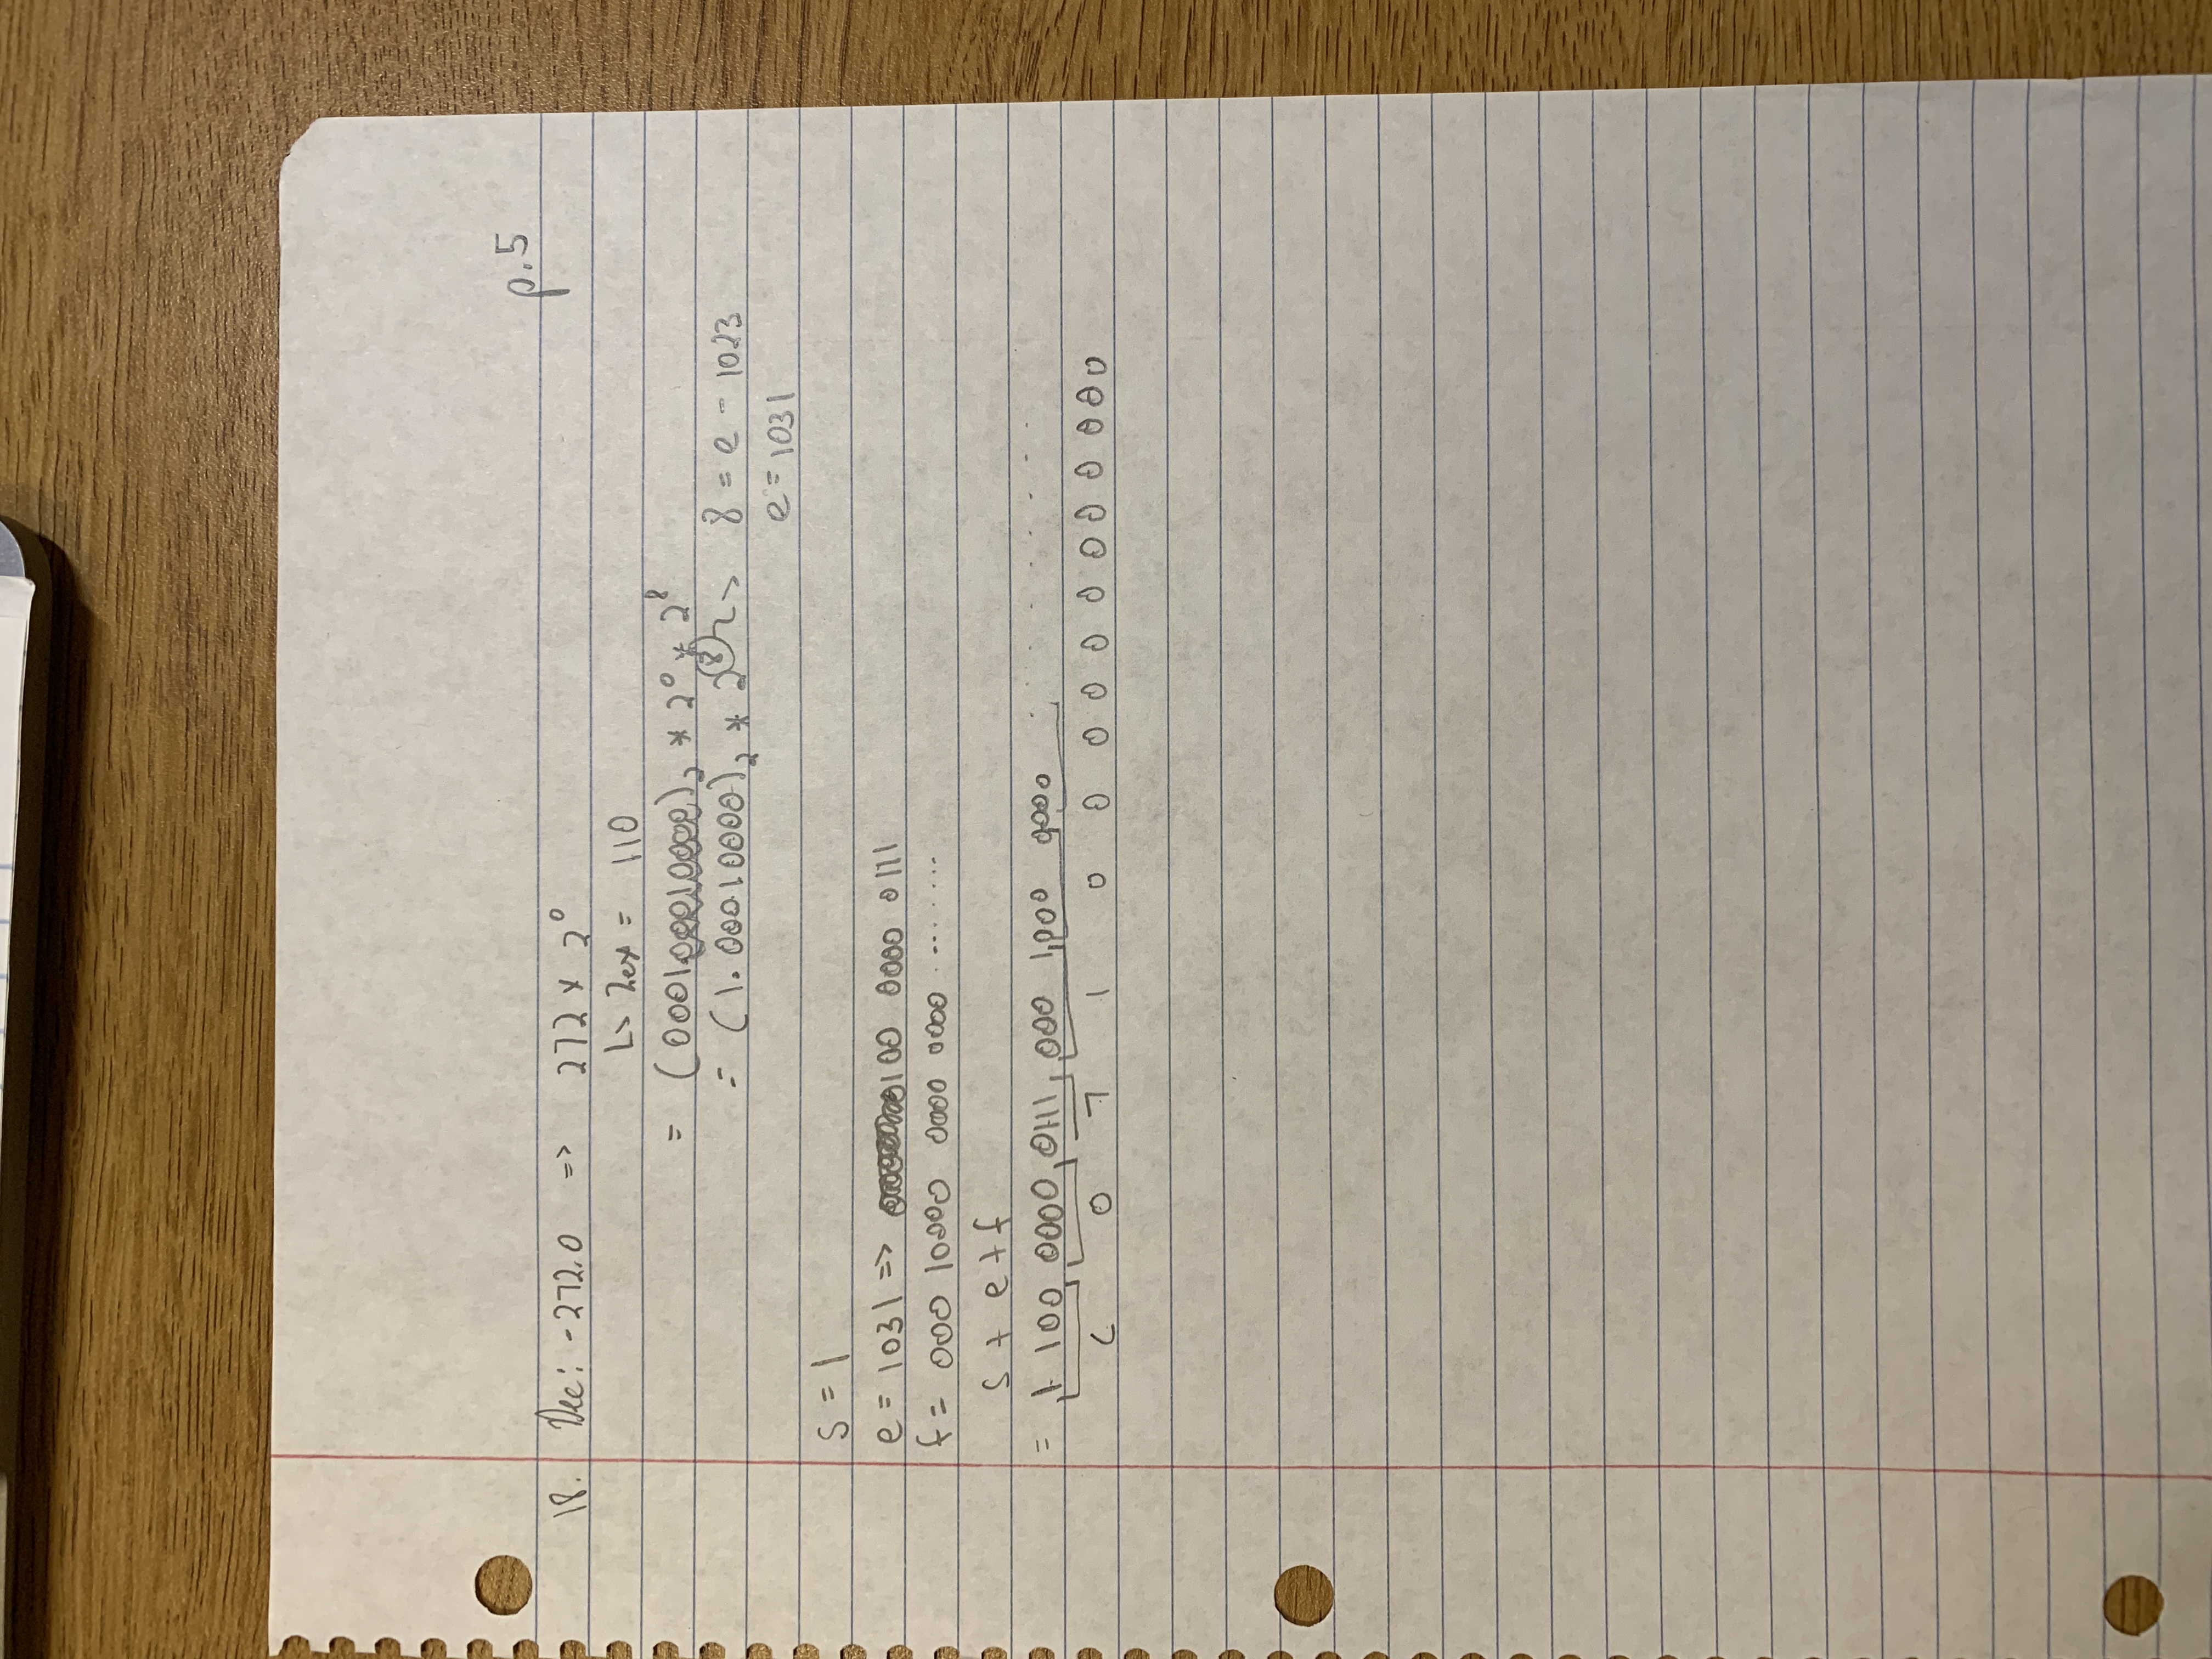 p.5
18. Dec: -272.0 => 272 * 2⁰
↳ hex = 110
= (000100010000)₂ * 2⁰ * 2⁸
= (1.00010000)₂ * 2⁸ → 8 = e - 1023
e = 1031
s = 1
e = 1031 => 100 0000 0111
f = 000 10000 0000 0000 ........
s + e + f
= 1 100 0000 0111 000 1000 0000 . . . . . . . . . .
C 0 7 1 0 0 0 0 0 0 0 0 0 0 0 0